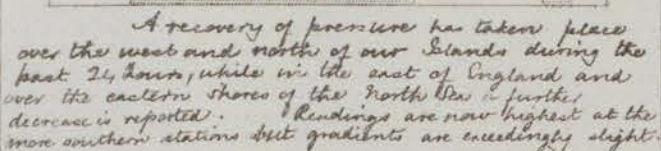 A recovery of pressure has taken place
over the west and north of our Islands during the
past 24 hours, while in the east of England and
over the eastern shores of the North Sea a further
decrease is reported. Readings are now highest at the
more southern stations but gradients are exceedingly slight